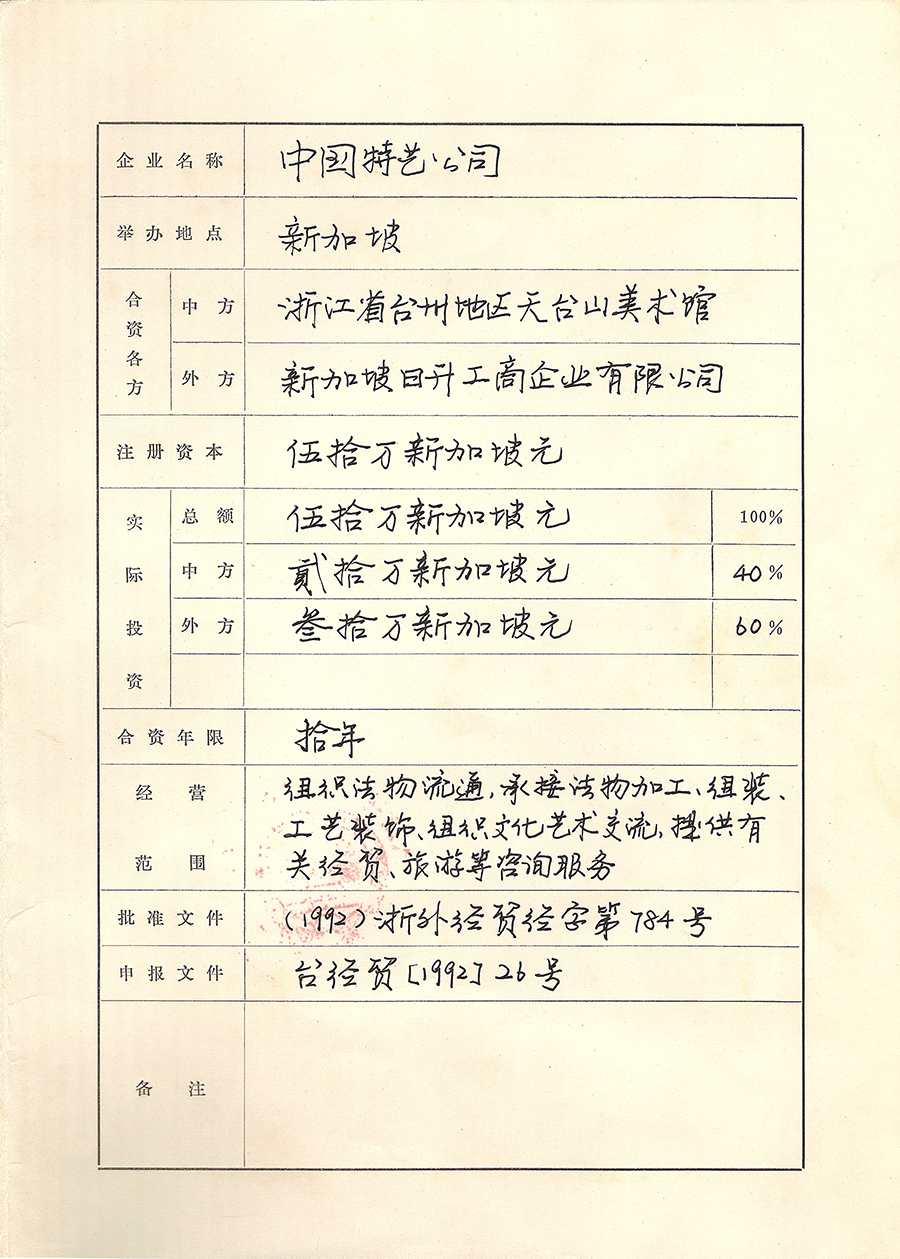 企业名称 中国特艺公司
举办地点 新加坡
合资各方 中方 浙江省台州地区天台山美术馆
外方 新加坡日升工商企业有限公司
注册资本 伍拾万新加坡元
实际投资 总额 伍拾万新加坡元 100%
中方 贰拾万新加坡元 40%
外方 叁拾万新加坡元 60%
合资年限 拾年
经营范围 组织法物流通,承接法物加工、组装、
工艺装饰、组织文化艺术交流,提供有
关经贸、旅游等咨询服务
批准文件 (1992)浙外经贸经字第784号
申报文件 台经贸[1992]26号
备注